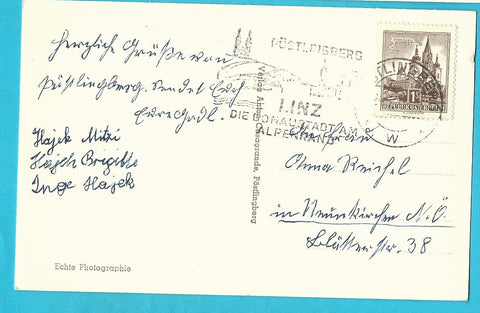 Herzliche Grüße von
Pöstlingberg. sendet Euch
Hajek Mitzi
Hajek Brigitte
Inge Hajek
Echte Photographie
Verlag Casagrande, Pöstlingberg
PÖSTLINGBERG
LINZ
DIE DONAUSTADT AM
ALPENRAND
REPUBLIK ÖSTERREICH
Frau
Anna Reichel
in Neunkirchen N.Ö.
38